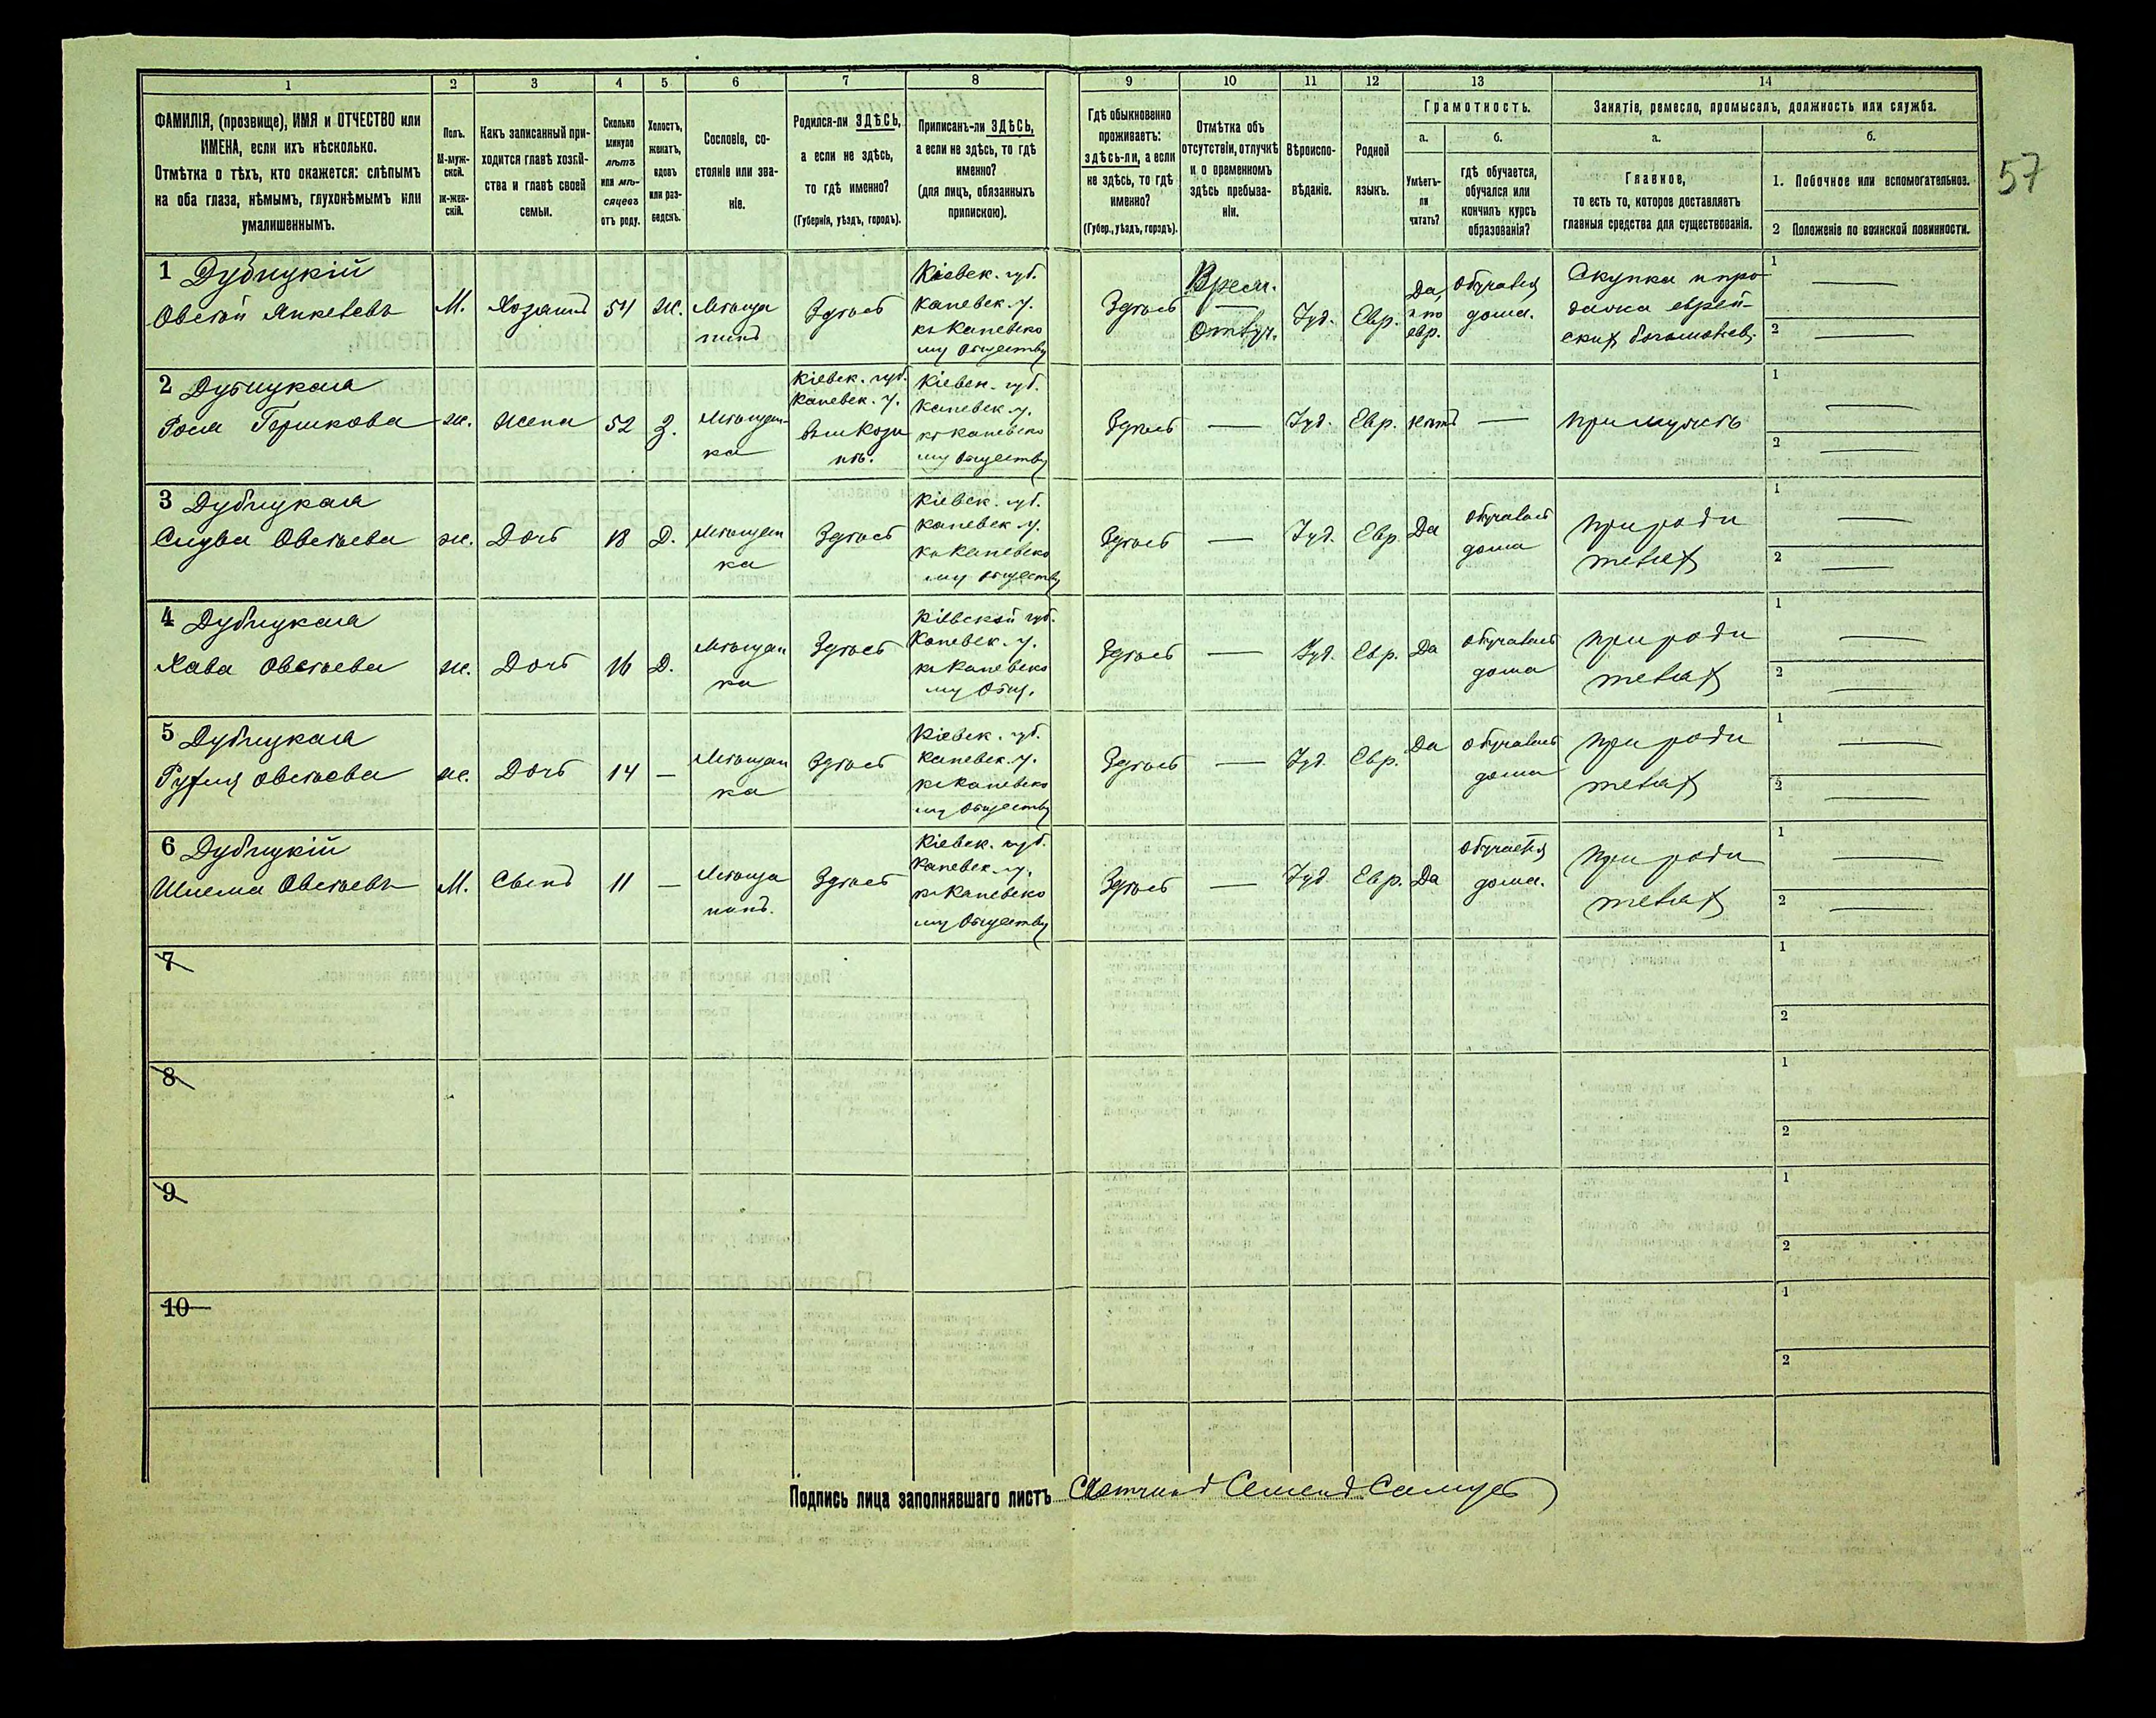 1 2 3 4 5 6 7 8 9 10 11 12 13 14
ФАМИЛІЯ, (прозвище), ИМЯ и ОТЧЕСТВО или
ИМЕНА, если ихъ нѣсколько.
Отмѣтка о тѣхъ, кто окажется: слѣпымъ
на оба глаза, нѣмымъ, глухонѣмымъ или
умалишеннымъ.
Полъ.
М-муж-
ской.
ж-жен-
скій.
Какъ записанный при-
ходится главѣ хозяй-
ства и главѣ своей
семьи.
Сколько
минуло
лѣтъ
или мѣ-
сяцевъ
отъ роду.
Холостъ,
женатъ,
вдовъ
или раз-
веденъ.
Сословіе, со-
стояніе или зва-
ніе.
Родился-ли ЗДѢСЬ,
а если не здѣсь,
то гдѣ именно?
(Губернія, уѣздъ, городъ).
Приписанъ-ли ЗДѢСЬ,
а если не здѣсь, то гдѣ
именно?
(для лицъ, обязанныхъ
припискою).
Гдѣ обыкновенно
проживаетъ:
здѣсь-ли, а если
не здѣсь, то гдѣ
именно?
(Губер., уѣздъ, городъ).
Отмѣтка объ
отсутствіи, отлучкѣ
и о временномъ
здѣсь пребыва-
ніи.
Вѣроиспо-
вѣданіе.
Родной
языкъ.
Грамотность.
а. б.
Умѣетъ-
ли
читать?
гдѣ обучается,
обучался или
кончилъ курсъ
образованія?
Занятіе, ремесло, промыселъ, должность или служба.
а. б.
Главное,
то есть то, которое доставляетъ
главныя средства для существованія.
1. Побочное или вспомогательное.
2 Положеніе по воинской повинности.
57
1 Дубицкій
Овсей Янкелевъ
М.
Хозяинъ
54
Ж.
Мѣща
нинъ
Здѣсь
Кіевск. губ.
Каневск. у.
къ Каневско
му Обществу
Здѣсь
Врем.
Отлуч.
Іуд.
Евр.
Да,
и по
евр.
обучался
дома.
Скупка и про
дажа еврей-
скихъ
1
2
2 Дубицкая
Рося Гершкова
ж.
жена
52
З.
Мѣщан-
ка
Кіевск. губ.
Каневск. у.
Кіевск. губ.
Каневск. у.
къ Каневско
му Обществу
Здѣсь
—
Іуд.
Евр.
нѣтъ
—
при мужѣ
1
2
3 Дубицкая
Овсѣева
ж.
Дочь
18
Д.
Мѣщан
ка
Здѣсь
Кіевск. губ.
Каневск. у.
къ Каневско
му Обществу
Здѣсь
—
Іуд.
Евр.
Да
обучалась
дома
при роди
теляхъ
1
2
4 Дубицкая
Хава Овсѣева
ж.
Дочь
16
Д.
Мѣщан
ка
Здѣсь
Кіевской губ.
Каневск. у.
къ Каневско
му Общ.
Здѣсь
—
Іуд.
Евр.
Да
обучалась
дома
при роди
теляхъ
1
2
5 Дубицкая
Овсѣева
ж.
Дочь
14
—
Мѣщан
ка
Здѣсь
Кіевск. губ.
Каневск. у.
къ Каневско
му Обществу
Здѣсь
—
Іуд.
Евр.
Да
обучалась
дома
при роди
теляхъ
1
2
6 Дубицкій
Шлема Овсѣевъ
М.
Сынъ
11
—
Мѣща
нинъ.
Здѣсь
Кіевск. губ.
Каневск. у.
къ Каневско
му Обществу
Здѣсь
—
Іуд.
Евр.
Да
обучается
дома.
при роди
теляхъ
1
2
7
1
2
8
1
2
9
1
2
10
1
2
Подпись лица заполнявшаго листъ Счетчикъ Семенъ